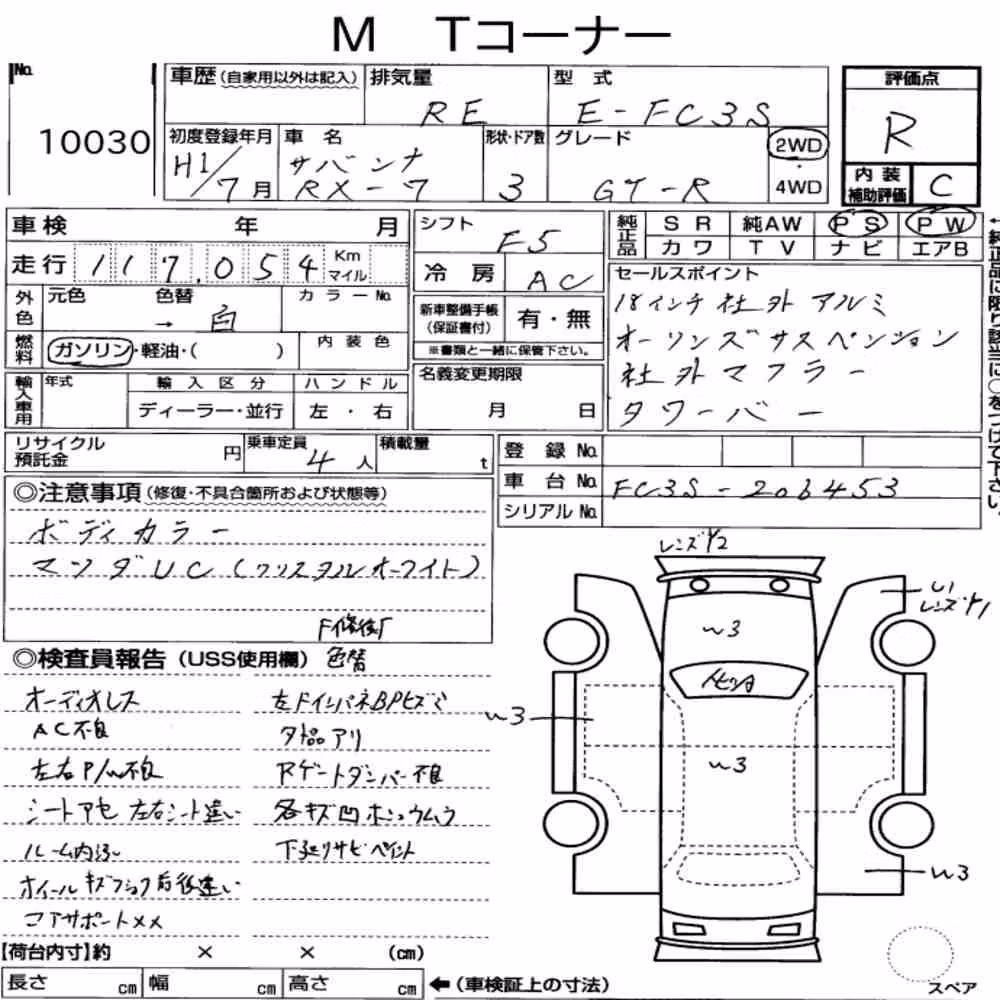 M Tコーナー
No.
10030
車歴(自家用以外は記入)
排気量
RE
型式
E-FC3S
評価点
R
初度登録年月
H1/7月
車名
サバンナ
RX-7
形状・ドア数
3
グレード
GT-R
2WD
・
4WD
内装
補助評価
C
車検 年 月
シフト
F5
純正品
SR 純AW PS PW
カワ TV ナビ エアB
走行 117,054 Km
マイル
冷房
AC
セールスポイント
18インチ社外アルミ
オーリンズサスペンション
社外マフラー
タワーバー
←純正品に限り該当に○をつけて下さい。
外色
元色 色替
→ 白
カラーNo.
新車整備手帳
(保証書付)
有・無
※書類と一緒に保管下さい。
燃料
ガソリン・軽油・( )
内装色
輸入車用
年式
輸入区分
ディーラー・並行
ハンドル
左・右
名義変更期限
月 日
リサイクル
預託金
円
乗車定員
4人
積載量
t
登録No.
車台No.
FC3S-206453
シリアルNo.
◎注意事項(修復・不具合箇所および状態等)
ボディカラー
マツダUC(クリスタルホワイト)
F修復厂
◎検査員報告(USS使用欄) 色替
オーディオレス
AC不良
左右P/W不良
シートアセ 左右シート違い
ルーム内汚レ
ホイールキズフック前後違い
コアサポートXX
左ドインパネBPヒズミ
外品アリ
Rゲートダンパー不良
各キズ凹ホシュウムラ
下廻りサビペイント
レンズY2
U1
レンズY1
W3
W3
W3
W3
【荷台内寸】約 × × (cm)
長さ cm 幅 cm 高さ cm
←(車検証上の寸法)
スペア